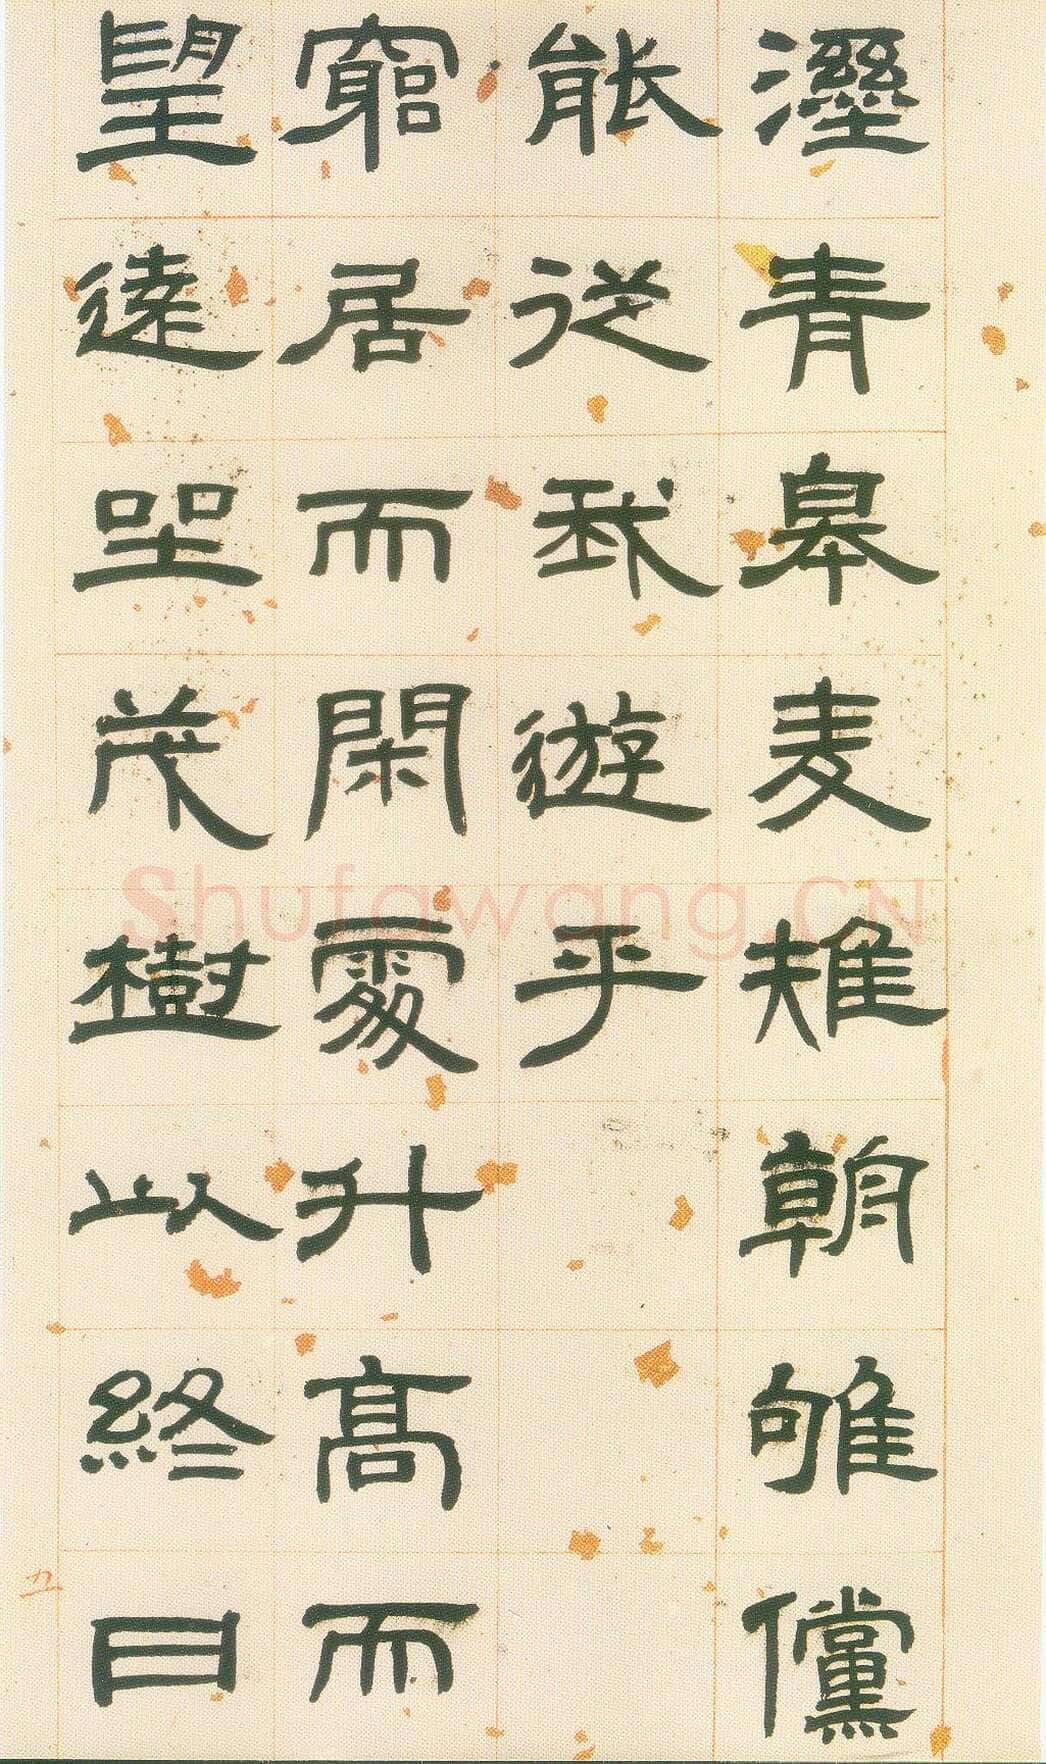 溼青皋麦雉朝雊儻
能従我遊乎
窮居而閑處升高而
望遠坐茂樹以終日
五
Shufawang.CN